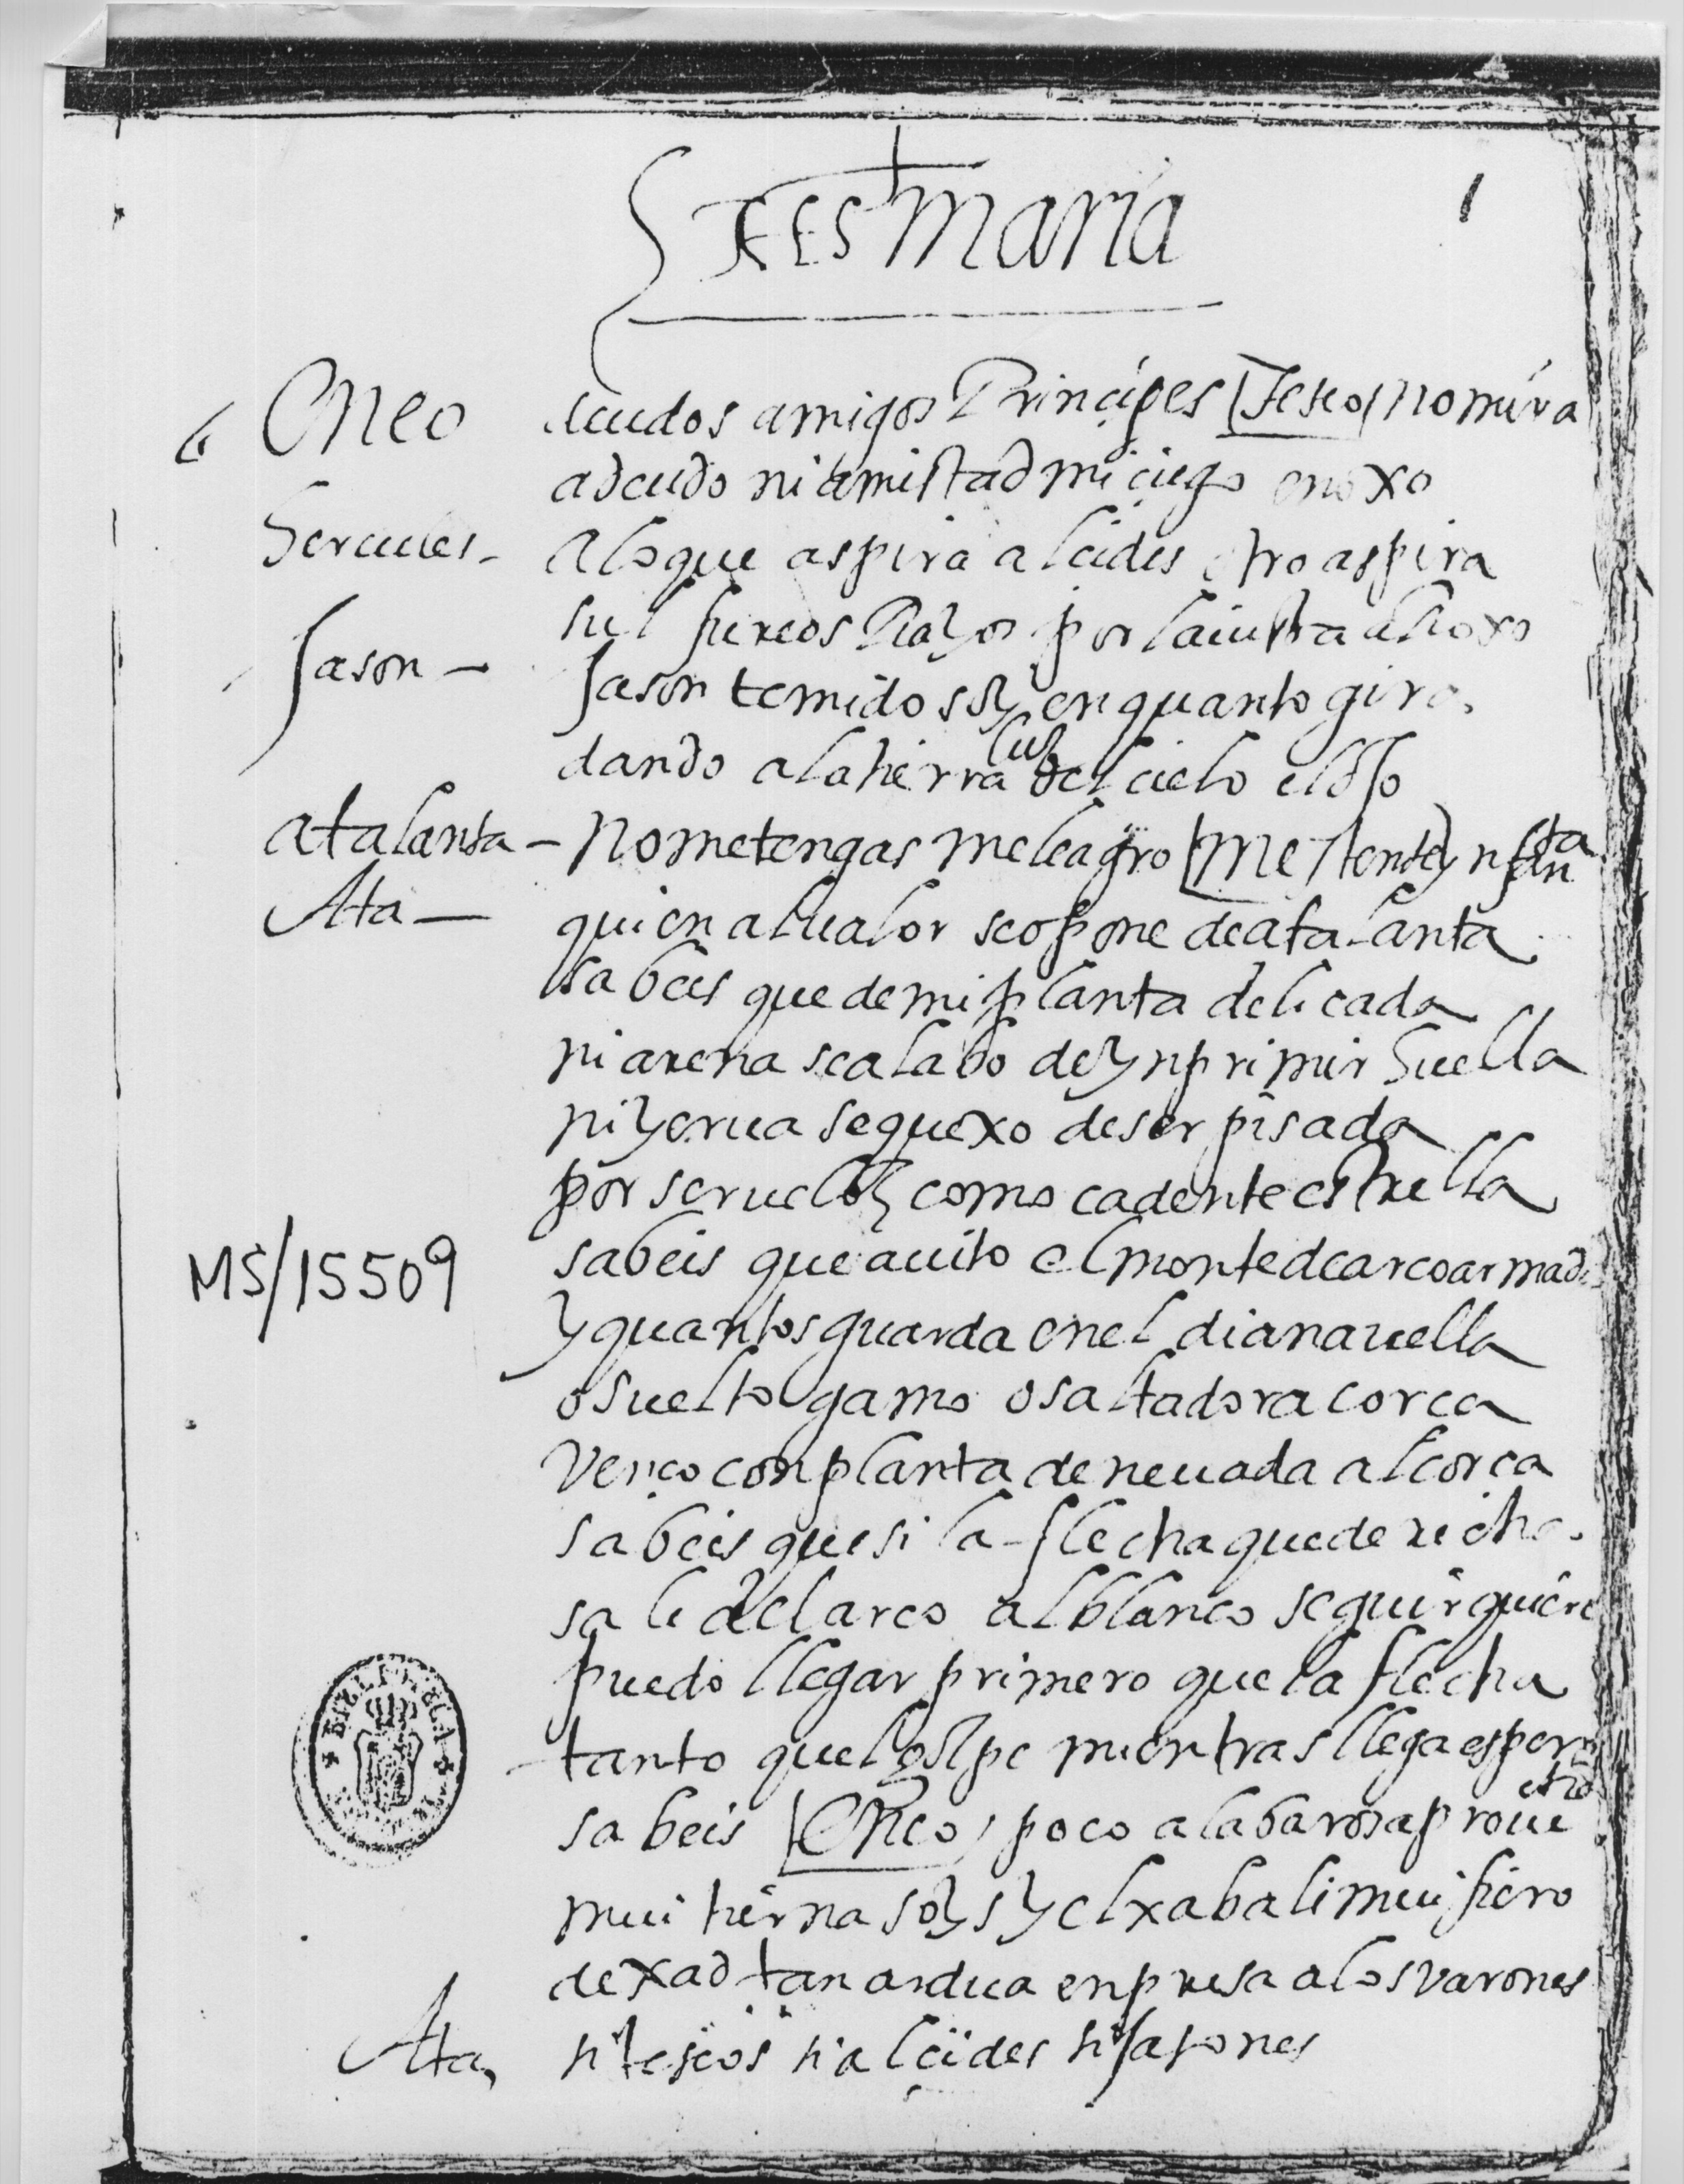 Jesus maria
1
Oneo deudos amigos Principes [Teseo] no mira
adeudo ni amistad mi ciego enoxo
Hercules - Alo que aspira alcides otro aspira
sulfureos Rayos por la iusta a Rroxo
Jason - Jason temido soy en quanto gira
dando alatierra luz del cielo el ojo
atalanta - no metengas meleagro [Me / tente ynfanta
Ata - quien al ualor se opone de atalanta
sabeis que de mi planta delicada
ni arena se alabo de ynprimir huella
ni yerua se quexo de ser pisada
por ser ueloz como cadente estrella
sabeis que auito el monte de arco armada
y quantos guarda en el diana uella
o suelto gamo o saltadora corça
venço con planta de neuada alcorça
sabeis que si la flecha que derecha
sale del arco al blanco seguir quiere
puedo llegar primero que la flecha
tanto quel golpe mientras llega espere
sabeis [Oneo] poco alabaros aproue
mui tierna soys y el xabali mui fiero
dexad tan ardua enpresa a los varones
Ata, ni teseos ni alçides ni jasones
MS/15509
BIBLIOTECA